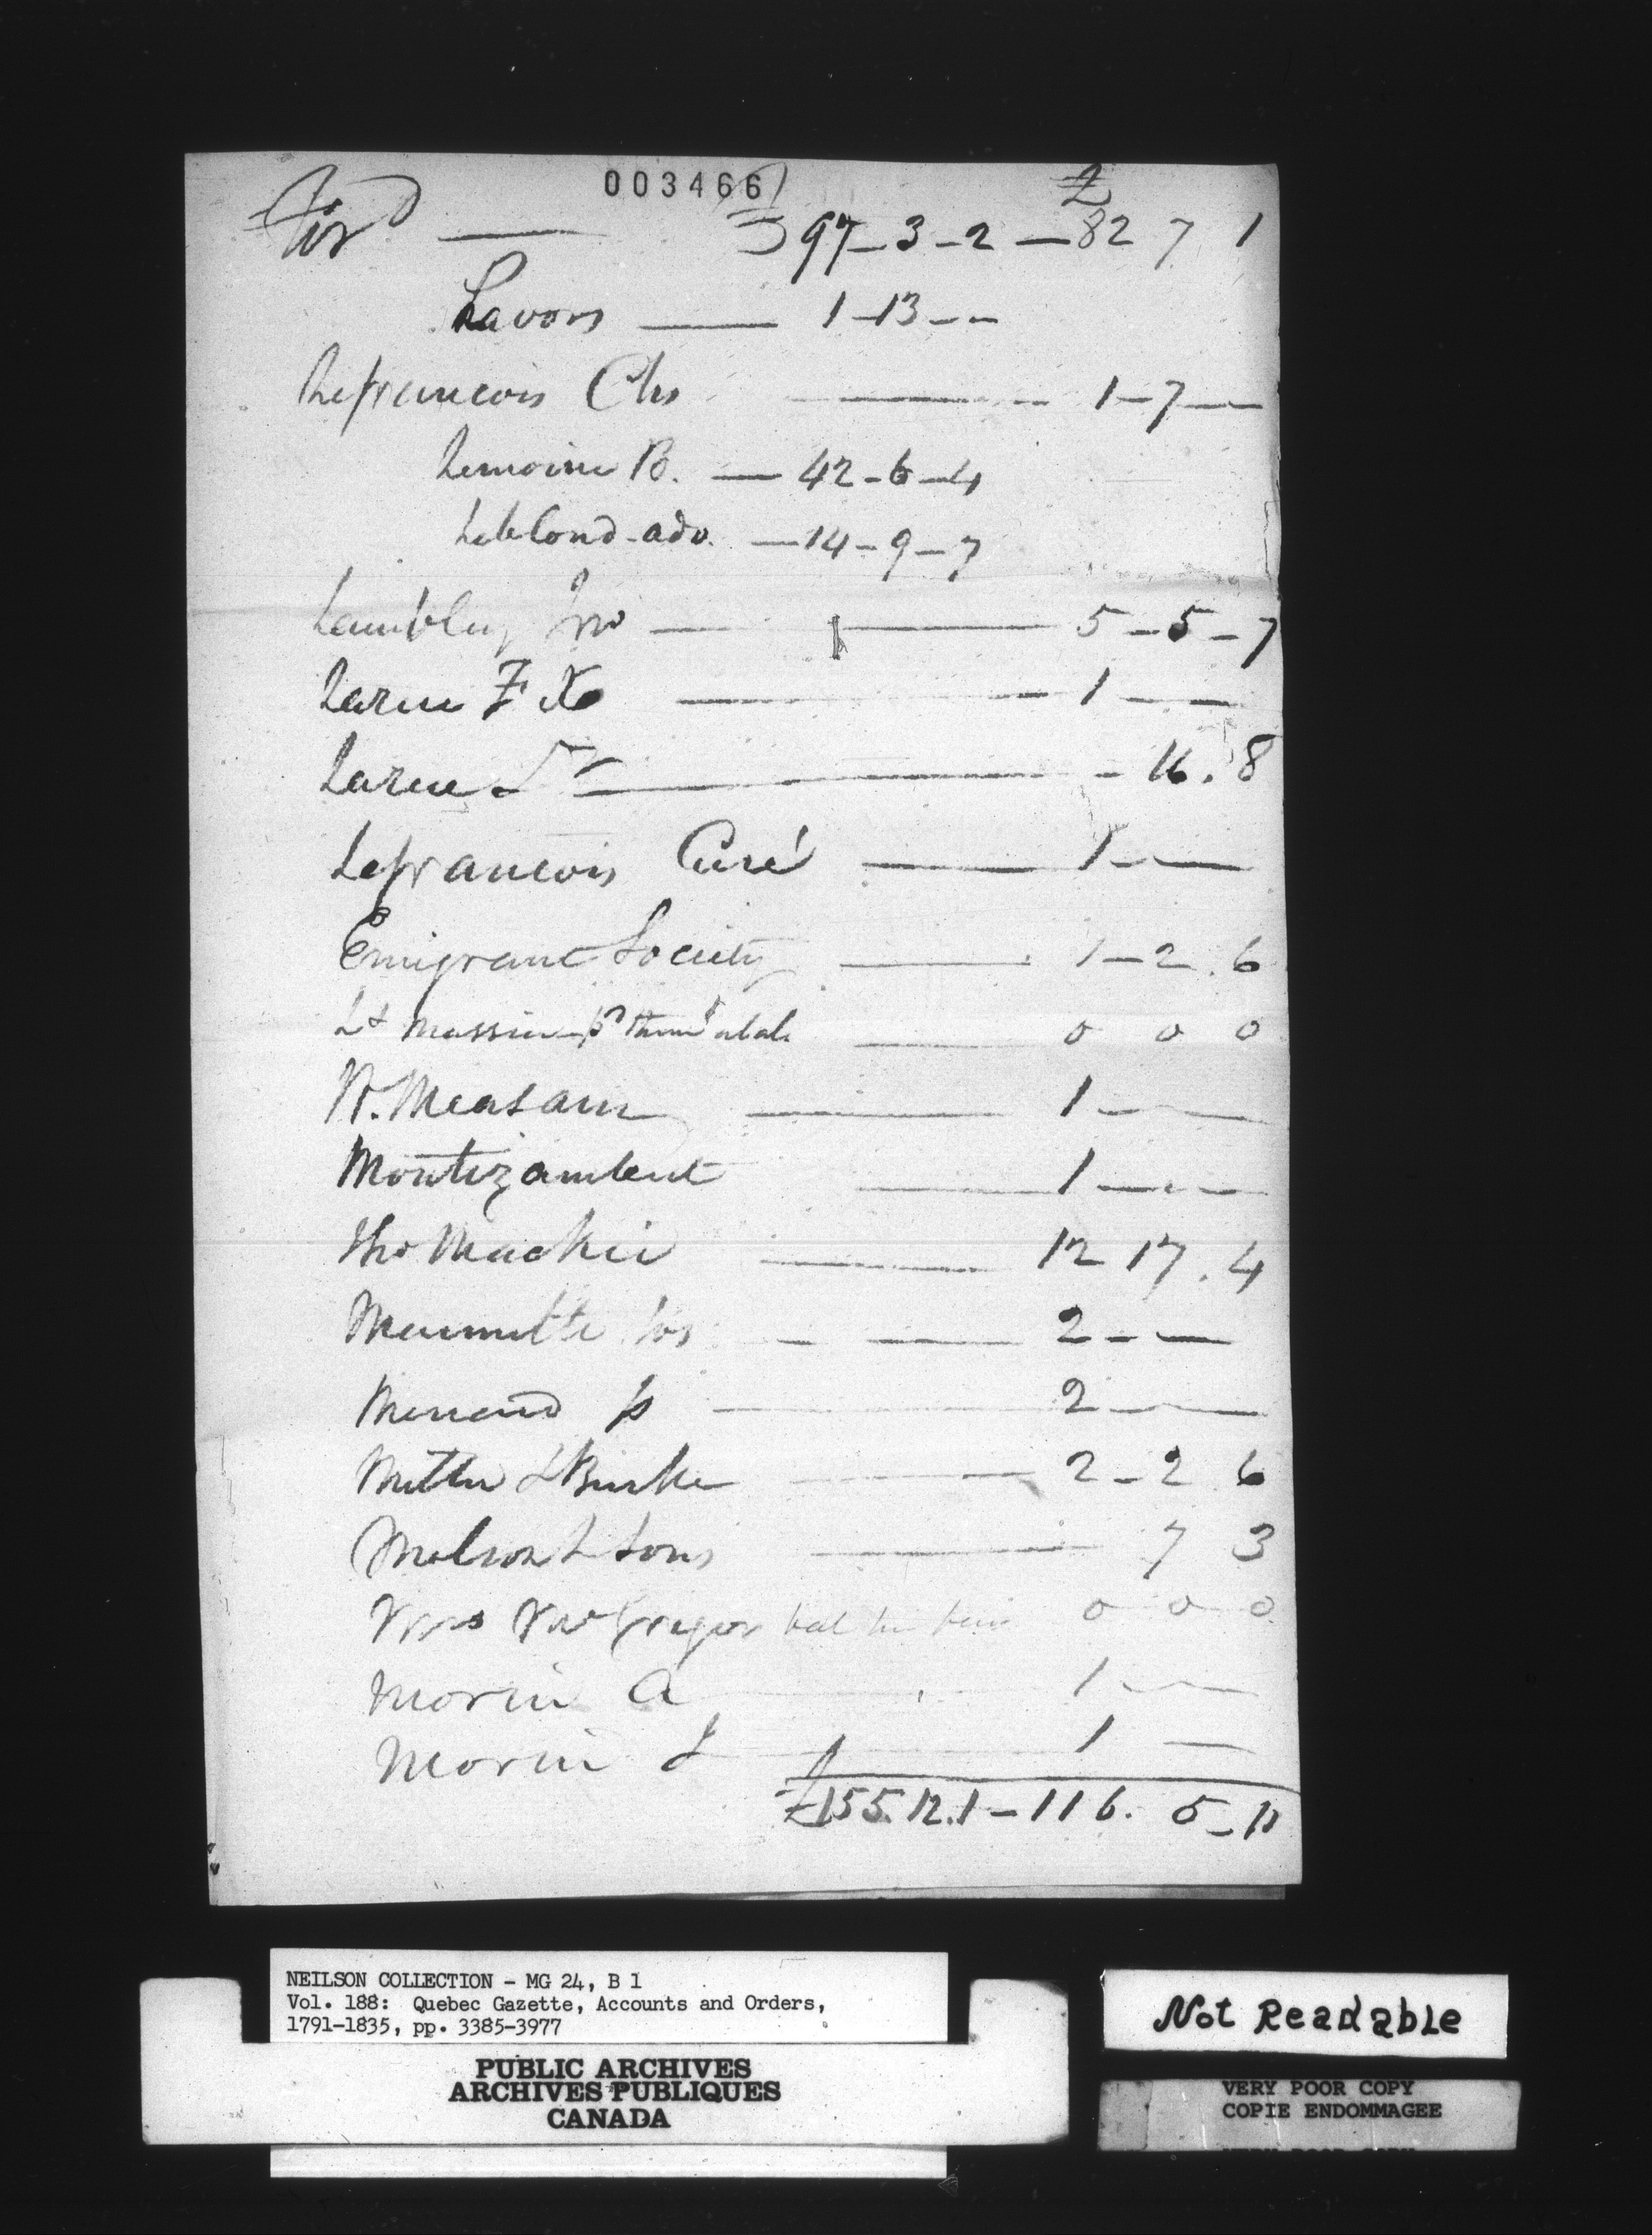 003466
£
For^d — 97-3-2 — 82 7 1
Lavons — 1-13--
Lefrancois Chs — 1-7—
Lemoine B. — 42-6-4
Leblond-adv. — 14-9-7
Lambly Jno — 5-5-7
Larue F X — 1 — —
Larue — 16.8
Lefrancois Curé — 1-—
Emigrant Society — 1-2.6
Lt — 0 0 0
W. Measam — 1 - —
Montizambert — 1 — - —
Tho Mackie — 12 17.4
Marmette Jos — 2 - —
Menard — 2 - —
& Burke — 2-2 6
Molson & Sons — 7 3
McGregor 0 0 0
Morin A — 1 - —
Morin — 1 —
£155.12.1 - 116. 5-11
NEILSON COLLECTION - MG 24, B 1
Vol. 188: Quebec Gazette, Accounts and Orders,
1791-1835, pp. 3385-3977
PUBLIC ARCHIVES
ARCHIVES PUBLIQUES
CANADA
Not Readable
VERY POOR COPY
COPIE ENDOMMAGEE